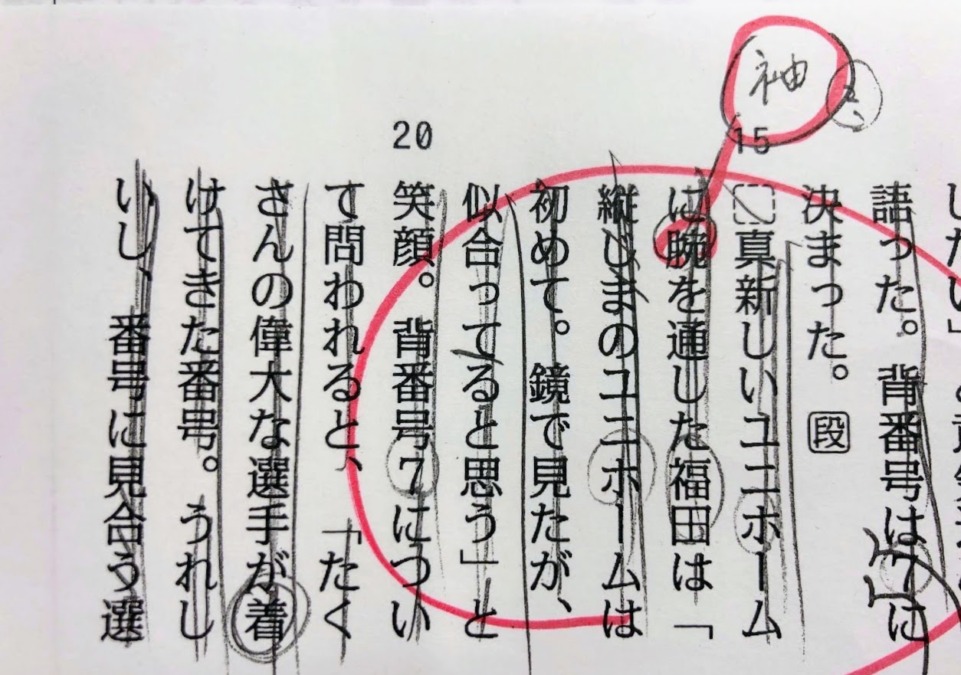 したい」
語った。背番号は7に
決まった。段
15
真新しいユニホーム
袖
に晩を通した福田は「
縦じまのユニホームは
初めて。鏡で見たが、
似合ってると思う」と
20
笑顔。背番号7につい
て問われると、「たく
さんの偉大な選手が着
けてきた番号。うれし
いし、番号に見合う選